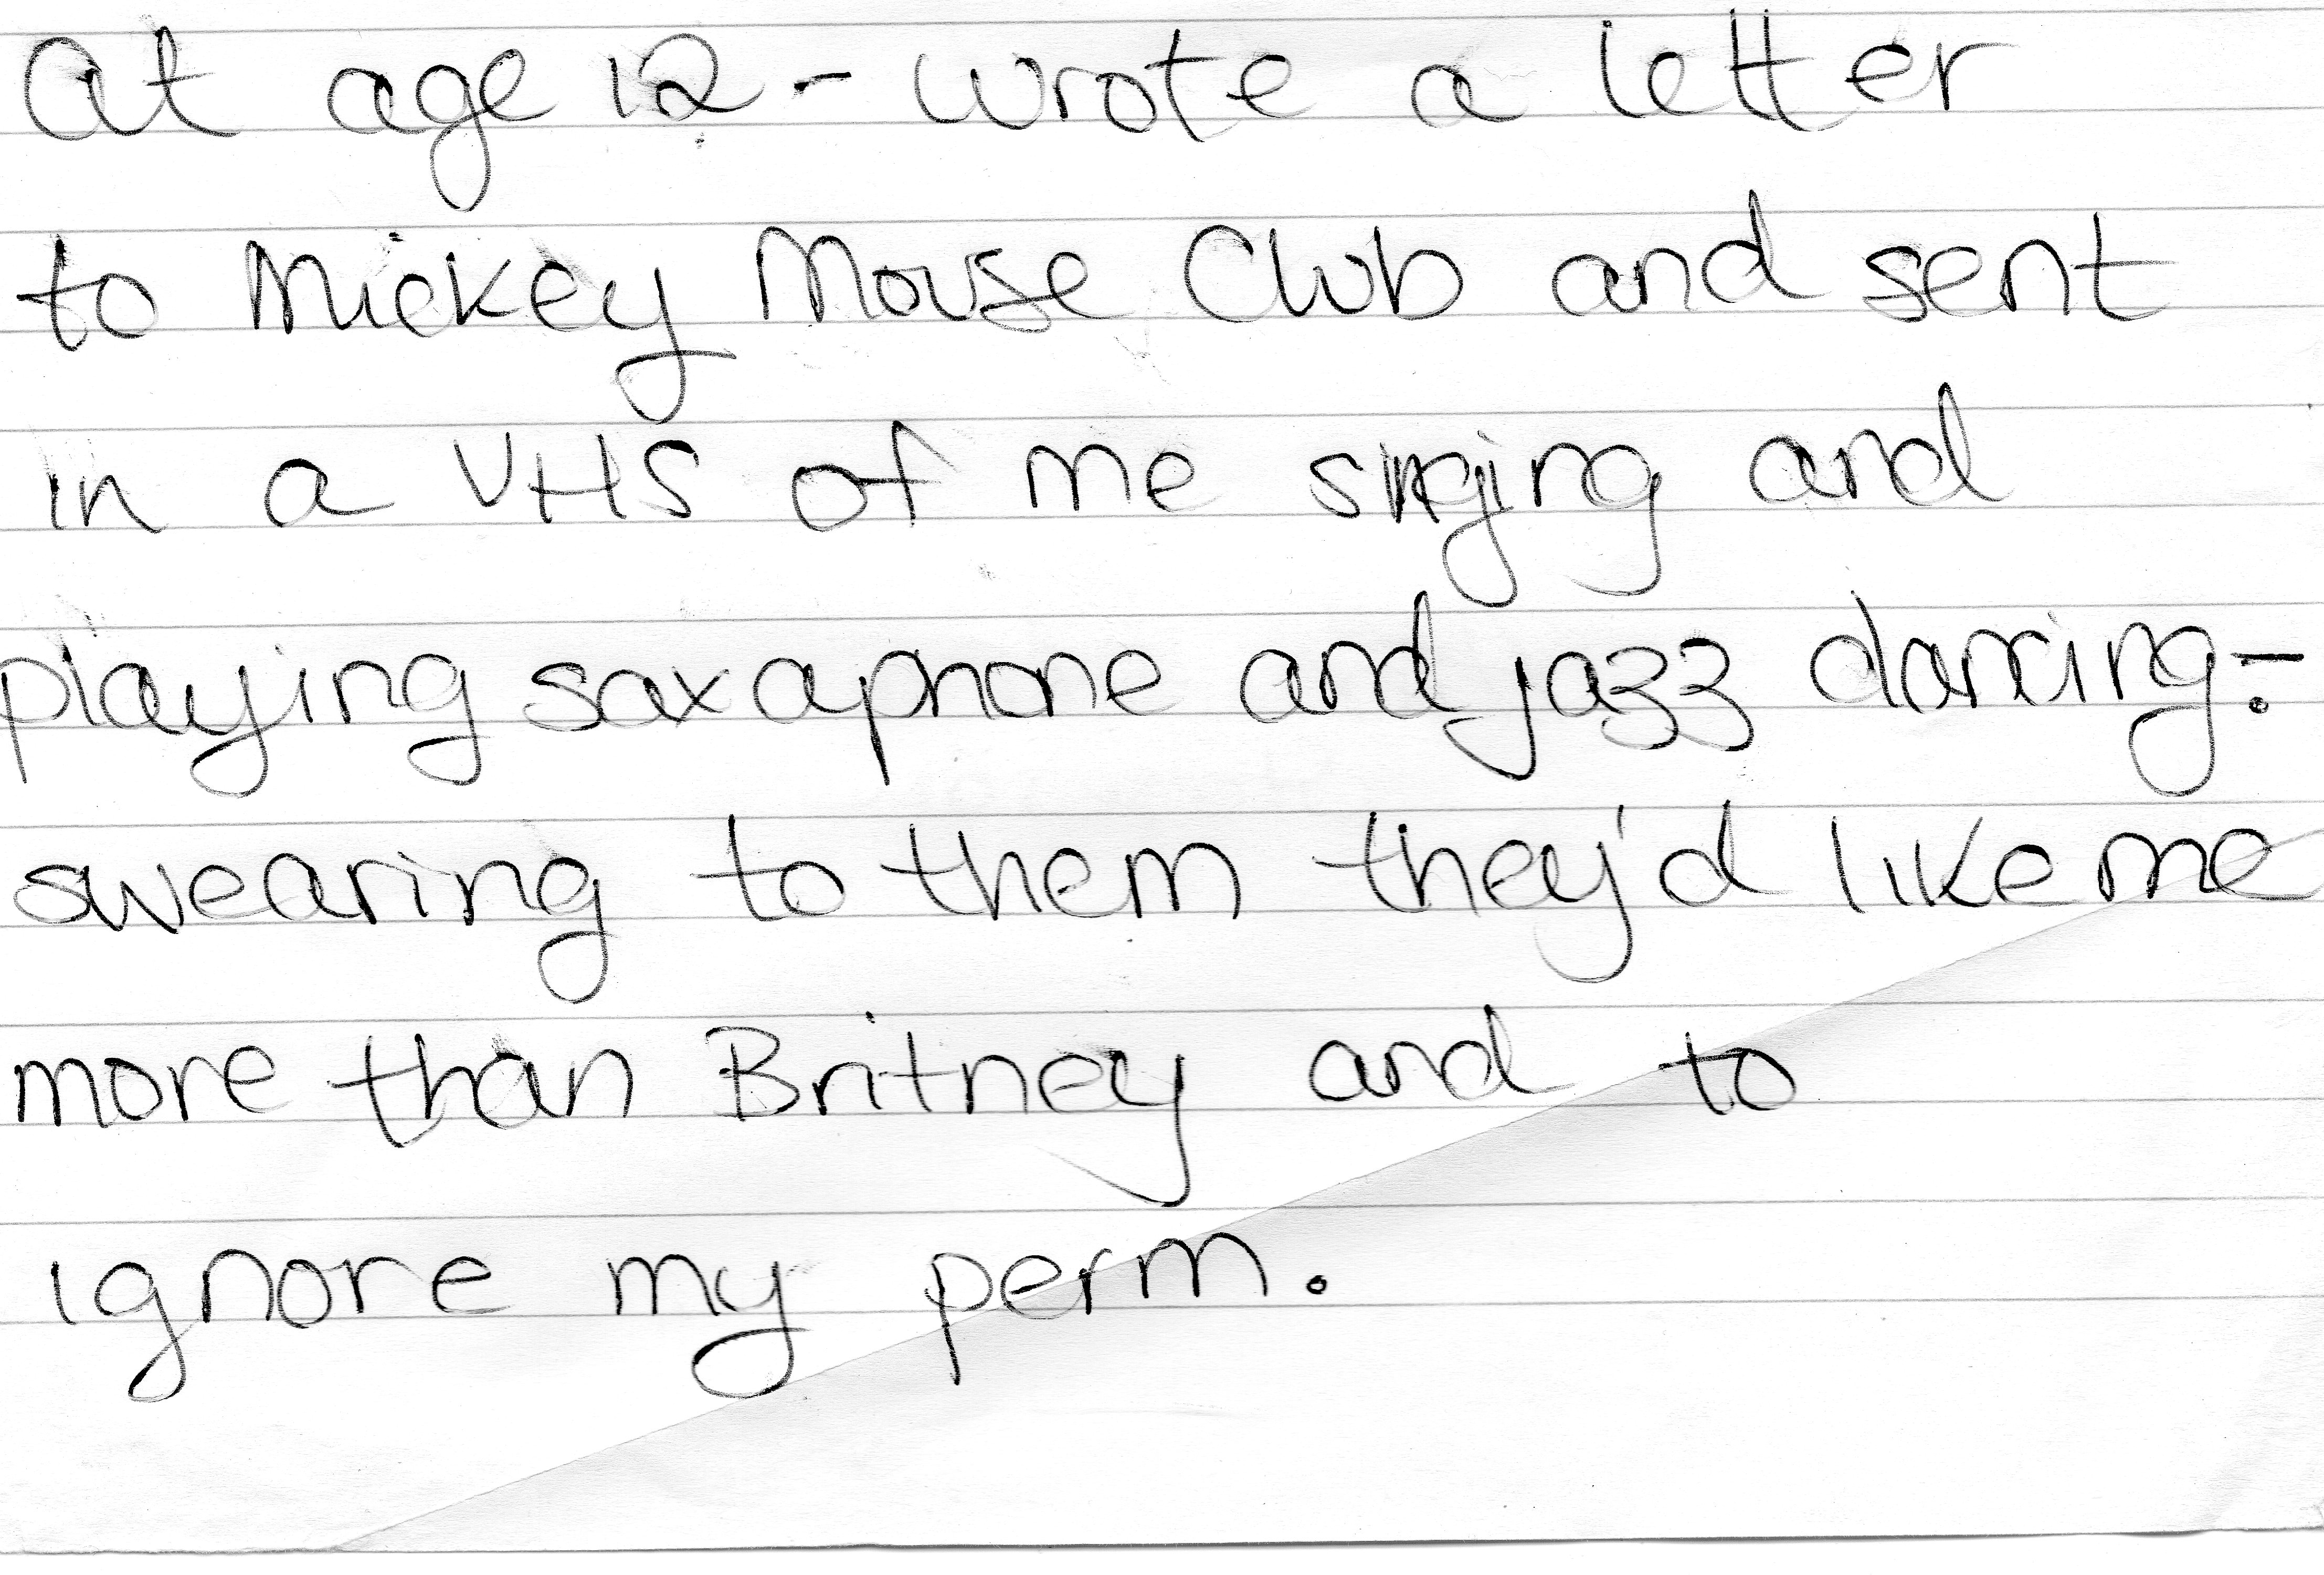 At age 12 - wrote a letter
to Mickey Mouse Club and sent
in a VHS of me singing and
playing saxaphone and jazz dancing -
swearing to them they'd like me
more than Britney and to
ignore my perm.